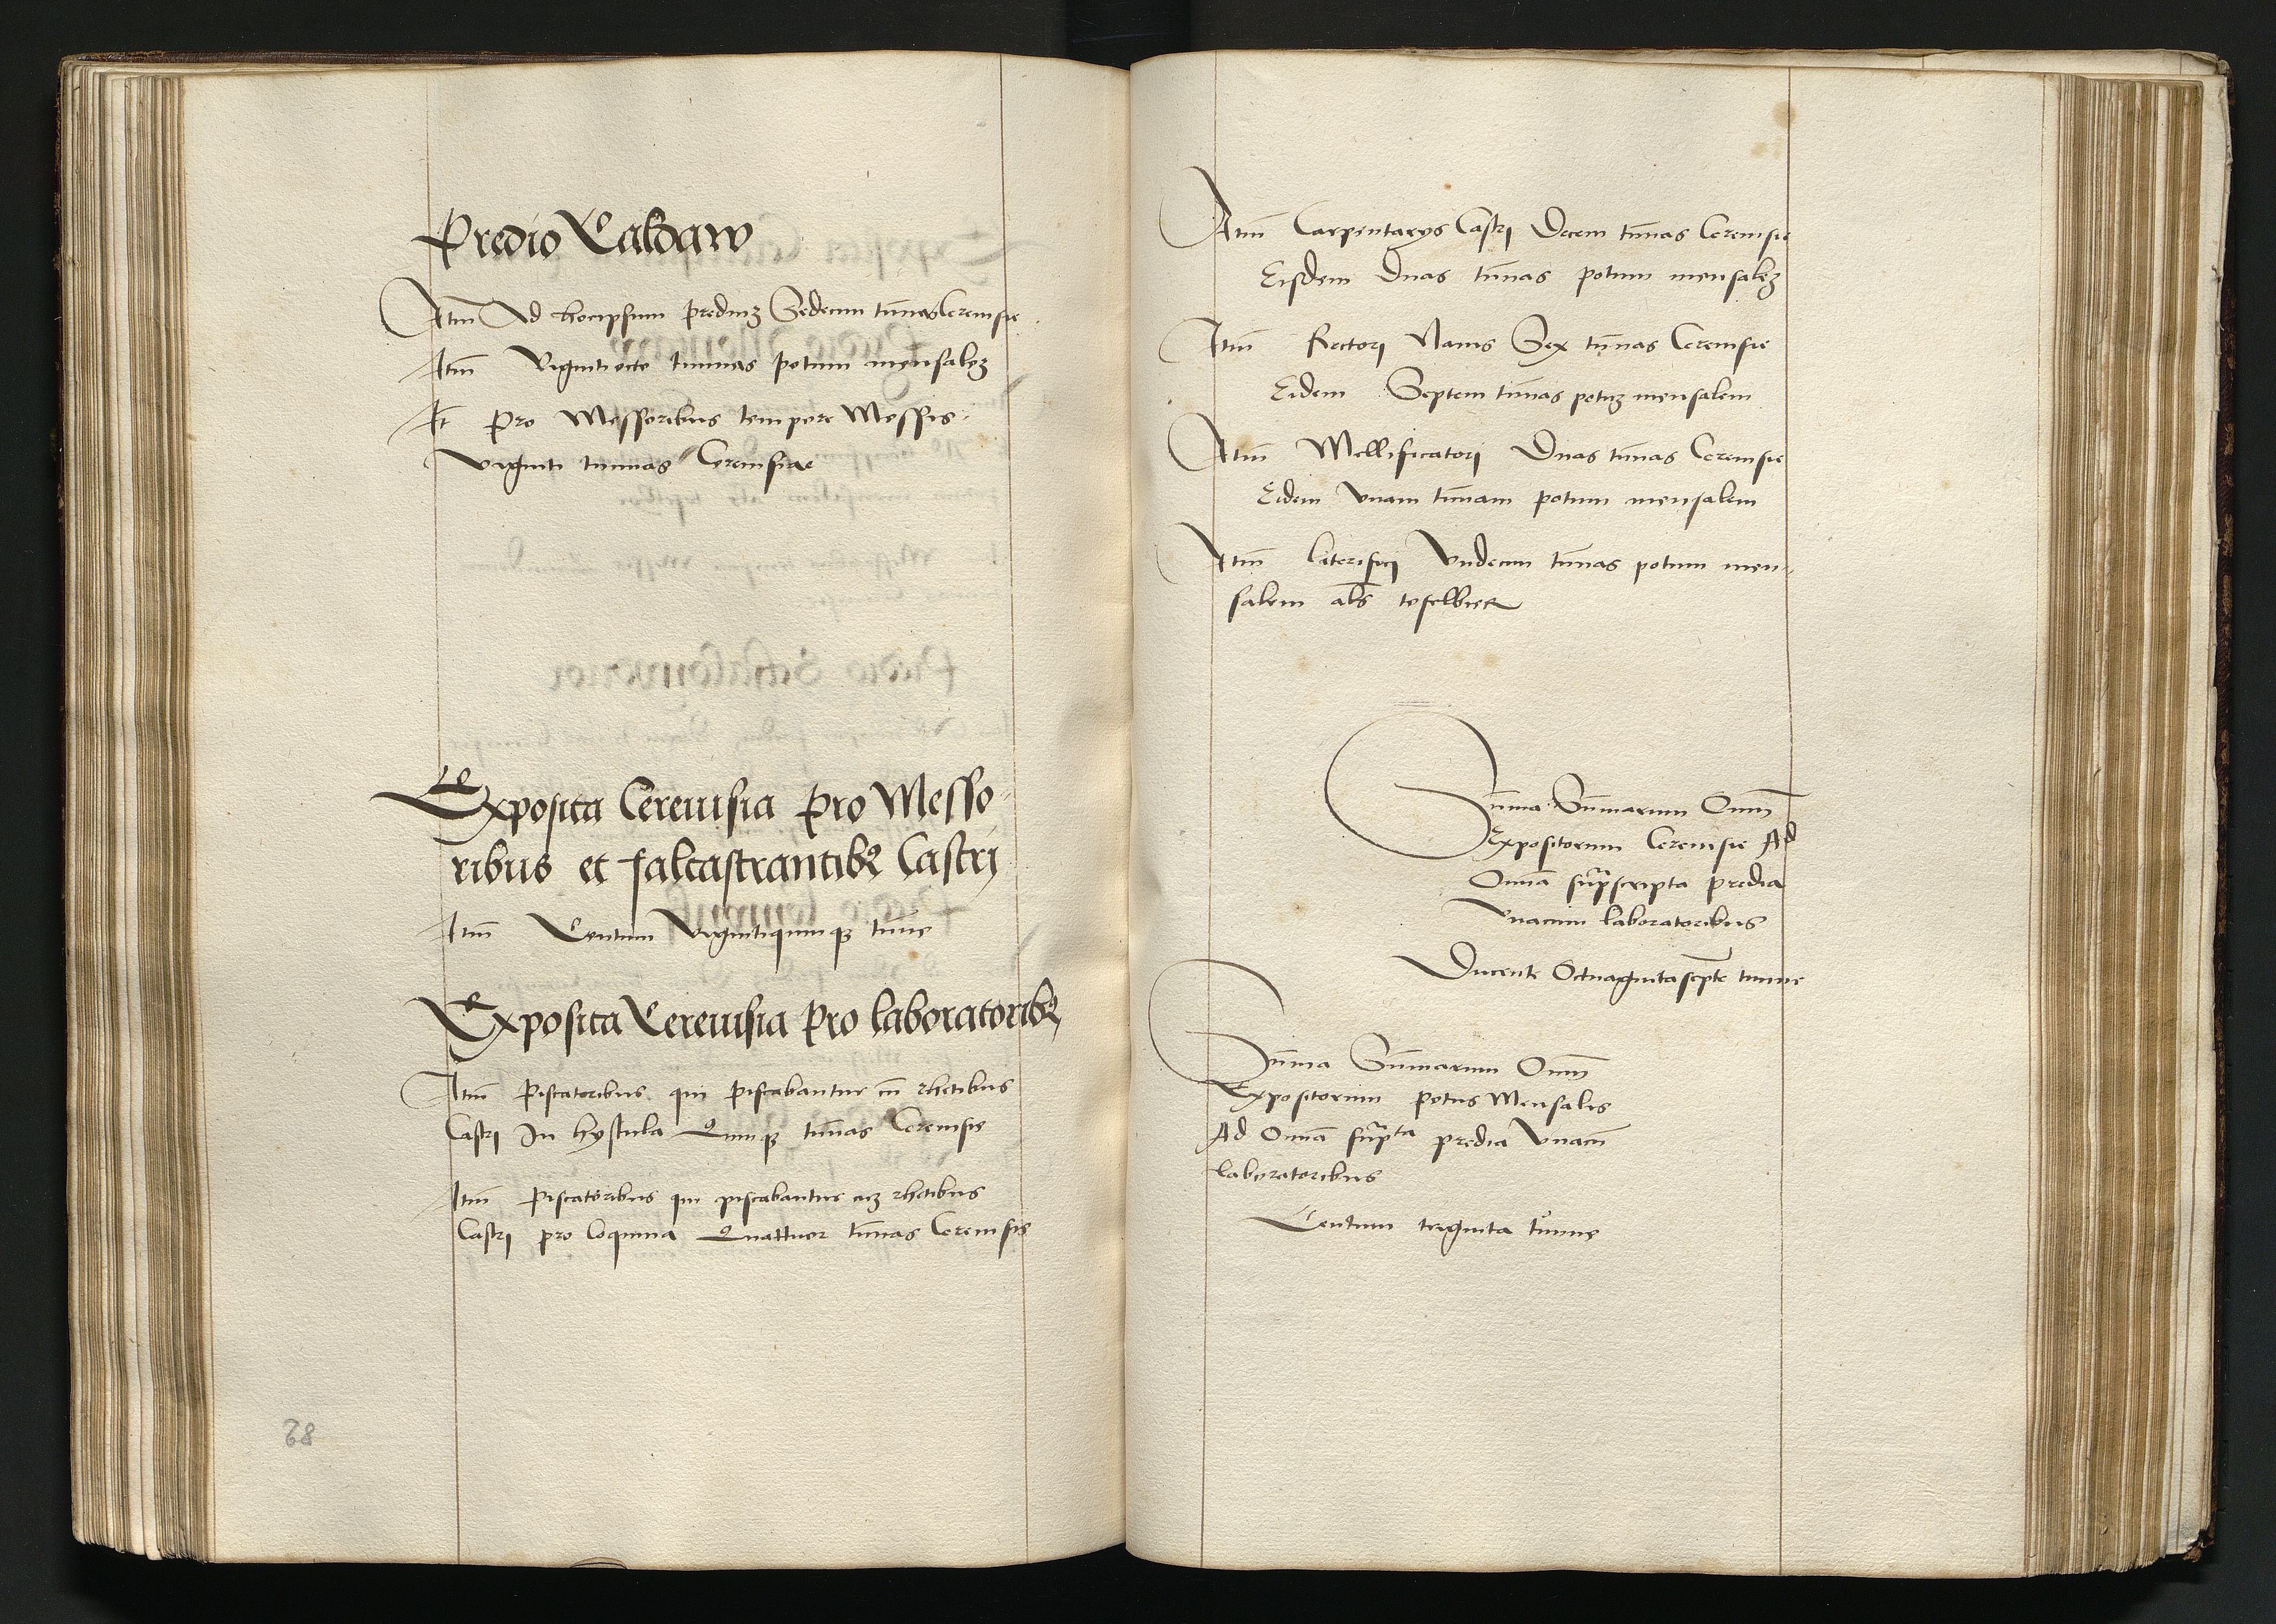 Predio Caldaw
Itm̄ Ad hocipsum prediuʒ Sedecim tūnas Cereuisie
Itm̄ Vigintiocto tunnas potum mensaleʒ
It̄ pro Messoribus tempore Messis
viginti tunnas Cereuisiae
Exposita Cereuisia pro Messo-
ribus et falcastrantibꝰ Castrj
Itm̄ Centum Vigintiquinqꝫ tūne
Exposita Cereuisia pro laboratoribꝰ
Itm̄ Piscatoribus qui piscabantur cū rhetibus
Castrj In hystula Quinqꝫ tūnas Cereuisie
Itm̄ Piscatoribus qui piscabantur cuʒ rhetibus
Castrj pro coquina Quattuor tūnas Cereuisie
68
Itm̄ Carpentarys Castrj Decem tūnas Cereuisie
Eisdem Duas tūnas potum mensaleʒ
Itm̄ Rectorj Nauis Sex tūnas Cereuisie
Eidem Septem tūnas potuʒ mensalem
Itm̄ Mellificatorj Duas tūnas Cereuisie
Eidem vnam tūnam potum mensalem
Itm̄ laterificj Vndecim tūnas potum men-
salem als̄ tefelbier
Sūma Sūmarum Oīum
Expositorum Cereuisie Ad
Omīa sup̄ascripta predia
Vnacum laboratoribus
Ducente Octuagintasepte tunne
Sūma Sūmarum Oīum
Expositorum potus Mensalis
Ad Omīa sup̄ᵗᵃ predia Vnacū
laboratoribus
Centum triginta tunne